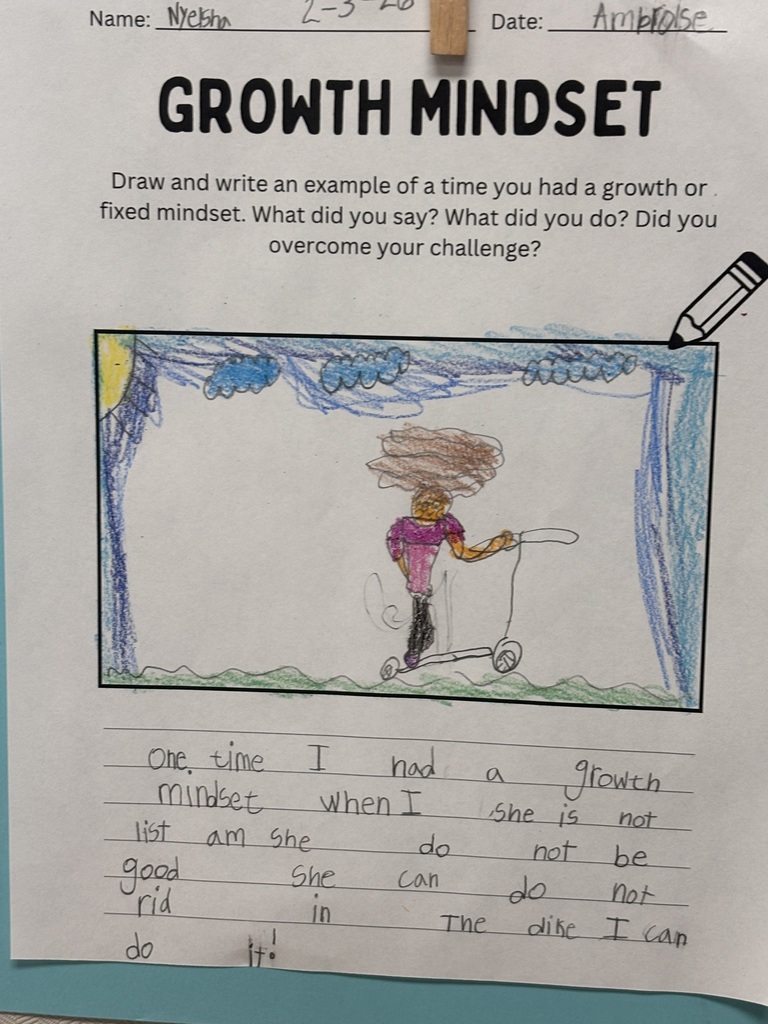 Name: Nyeisha 2-3-26 Date: Ambroise
GROWTH MINDSET
Draw and write an example of a time you had a growth or
fixed mindset. What did you say? What did you do? Did you
overcome your challenge?
One time I had a growth
mindset when I she is not
list am she do not be
good she can do not
rid in The dike I can
do it!